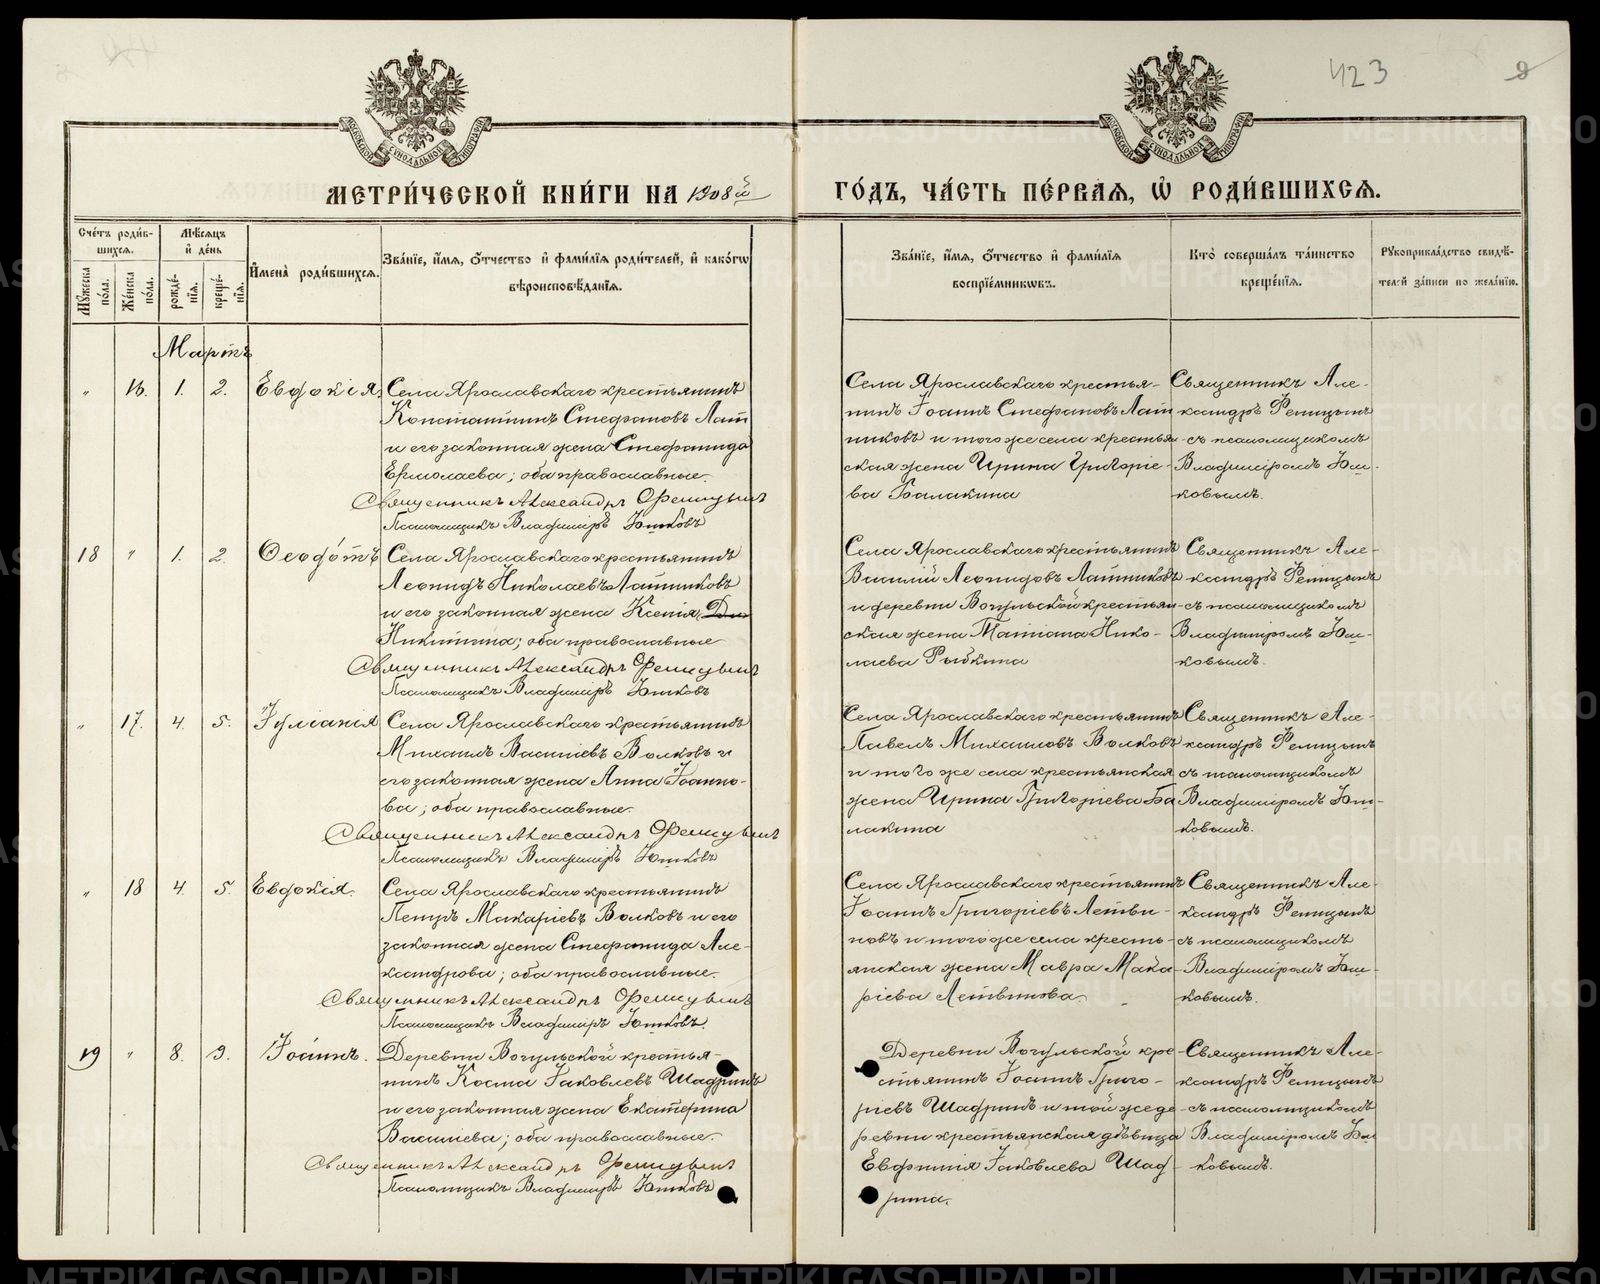 423
МОСКОВСКОЙ СѴНОДАЛЬНОЙ ТИПОГРАФІИ
МОСКОВСКОЙ СѴНОДАЛЬНОЙ ТИПОГРАФІИ
МЕТРИ́ЧЕСКОЙ КНИ́ГИ НА 1908й
ГО́ДЪ, ЧА́СТЬ ПЕ́РВАЯ, Ѡ҆ РОДИ́ВШИХСЯ.
Сче́тъ роди́в-
шихся.
Мꙋ́жеска по́ла.
Же́нска по́ла.
Мѣ́сяцъ
и҆ де́нь
рожде́-
нїя.
креще́-
нїя.
И҆мена̀ роди́вшихся.
Зва́нїе, и҆́мя, ѻ҆́тчество и҆ фами́лїя роди́телей, и҆ како́гѡ
вѣроисповѣ́данїя.
Зва́нїе, и҆́мя, ѻ҆́тчество и҆ фами́лїя
воспрїе́мникѡвъ.
Кто̀ соверша́лъ та́инство
креще́нїя.
Рꙋкоприкла́дство свидѣ́-
телей за́писи по жела́нїю.
Мартъ
„ 16. 1. 2. Евдокія.
Села Ярославскаго крестьянинъ
Константинъ Стефановъ Лат
и его законная жена Стефанида
Ермолаева; оба православные.
Священникъ Александръ
Псаломщикъ Владиміръ Юшковъ
Села Ярославскаго крестья-
нинъ Іоаннъ Стефановъ Лат
никовъ и того же села крестьян-
ская жена Ирина Григоріе-
ва Балакина
Священникъ Але-
ксандръ
съ псаломщикомъ
Владиміромъ Юш-
ковымъ.
18 „ 1. 2. Ѳеодо́тъ
Села Ярославскаго крестьянинъ
Леонидъ Николаевъ Латниковъ
и его законная жена Ксенія
Никитина; оба православные
Священникъ Александръ
Псаломщикъ Владиміръ Юшковъ
Села Ярославскаго крестьянинъ
Василій Леонидовъ Латниковъ
и деревни Вогульской крестьян-
ская жена Татіана Нико-
лаева Рыбкина
Священникъ Але-
ксандръ
съ псаломщикомъ
Владиміромъ Юш-
ковымъ.
„ 17. 4. 5. Іуліанія
Села Ярославскаго крестьянинъ
Михаилъ Василіевъ Волковъ и
его законная жена Анна Іоанно-
ва; оба православные.
Священникъ Александръ
Псаломщикъ Владиміръ Юшковъ
Села Ярославскаго крестьянинъ
Павелъ Михаиловъ Волковъ
и того же села крестьянская
жена Ирина Григоріева Ба
лакина
Священникъ Але-
ксандръ
съ псаломщикомъ
Владиміромъ Юш-
ковымъ.
„ 18 4. 5. Евдокія.
Села Ярославскаго крестьянинъ
Петръ Макаріевъ Волковъ и его
законная жена Стефанида Але-
ксандрова; оба православные.
Священникъ Александръ
Псаломщикъ Владиміръ Юшковъ.
Села Ярославскаго крестьянинъ
Іоаннъ Григоріевъ Летви-
новъ и того же села кресть-
янская жена Мавра Мака-
ріева Летвинова.
Священникъ Але-
ксандръ
съ псаломщикомъ
Владиміромъ Юш-
ковымъ.
19 „ 8. 9. Іоаннъ.
Деревни Вогульской крестья-
нинъ Косма Іаковлевъ Шадринъ
и его законная жена Екатерина
Василіева; оба православные.
Священникъ Александръ
Псаломщикъ Владиміръ Юшковъ
Деревни Вогульской кре-
стьянинъ Іоаннъ Григо-
ріевъ Шадринъ и той же де-
ревни крестьянская дѣвица
Евфимія Іаковлева Шад-
рина.
Священникъ Але-
ксандръ
съ псаломщикомъ
Владиміромъ Юш
ковымъ.
METRIKI.GASO-URAL.RU